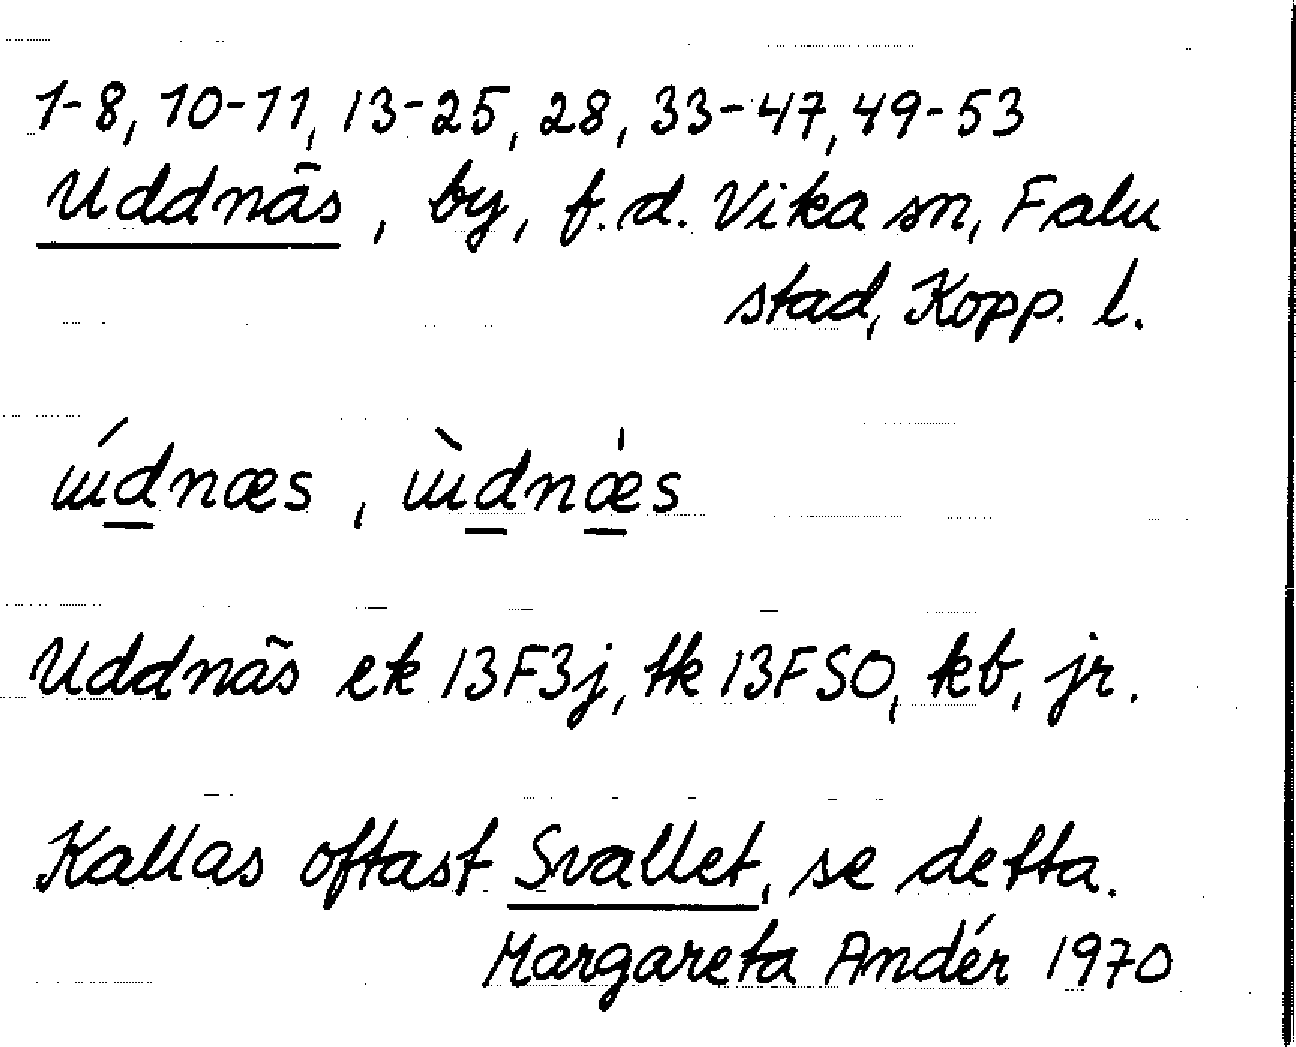 1-8, 10-11, 13-25, 28, 33-47, 49-53
Uddnäs, by, f.d. Vika sn, Falu
stad, Kopp. l.
ɯ́dnæs, ɯ̀dnæ̍s
Uddnäs ek 13F3j, tk 13FSO, kb, jr.
Kallas oftast Svallet, se detta.
Margareta Andér 1970